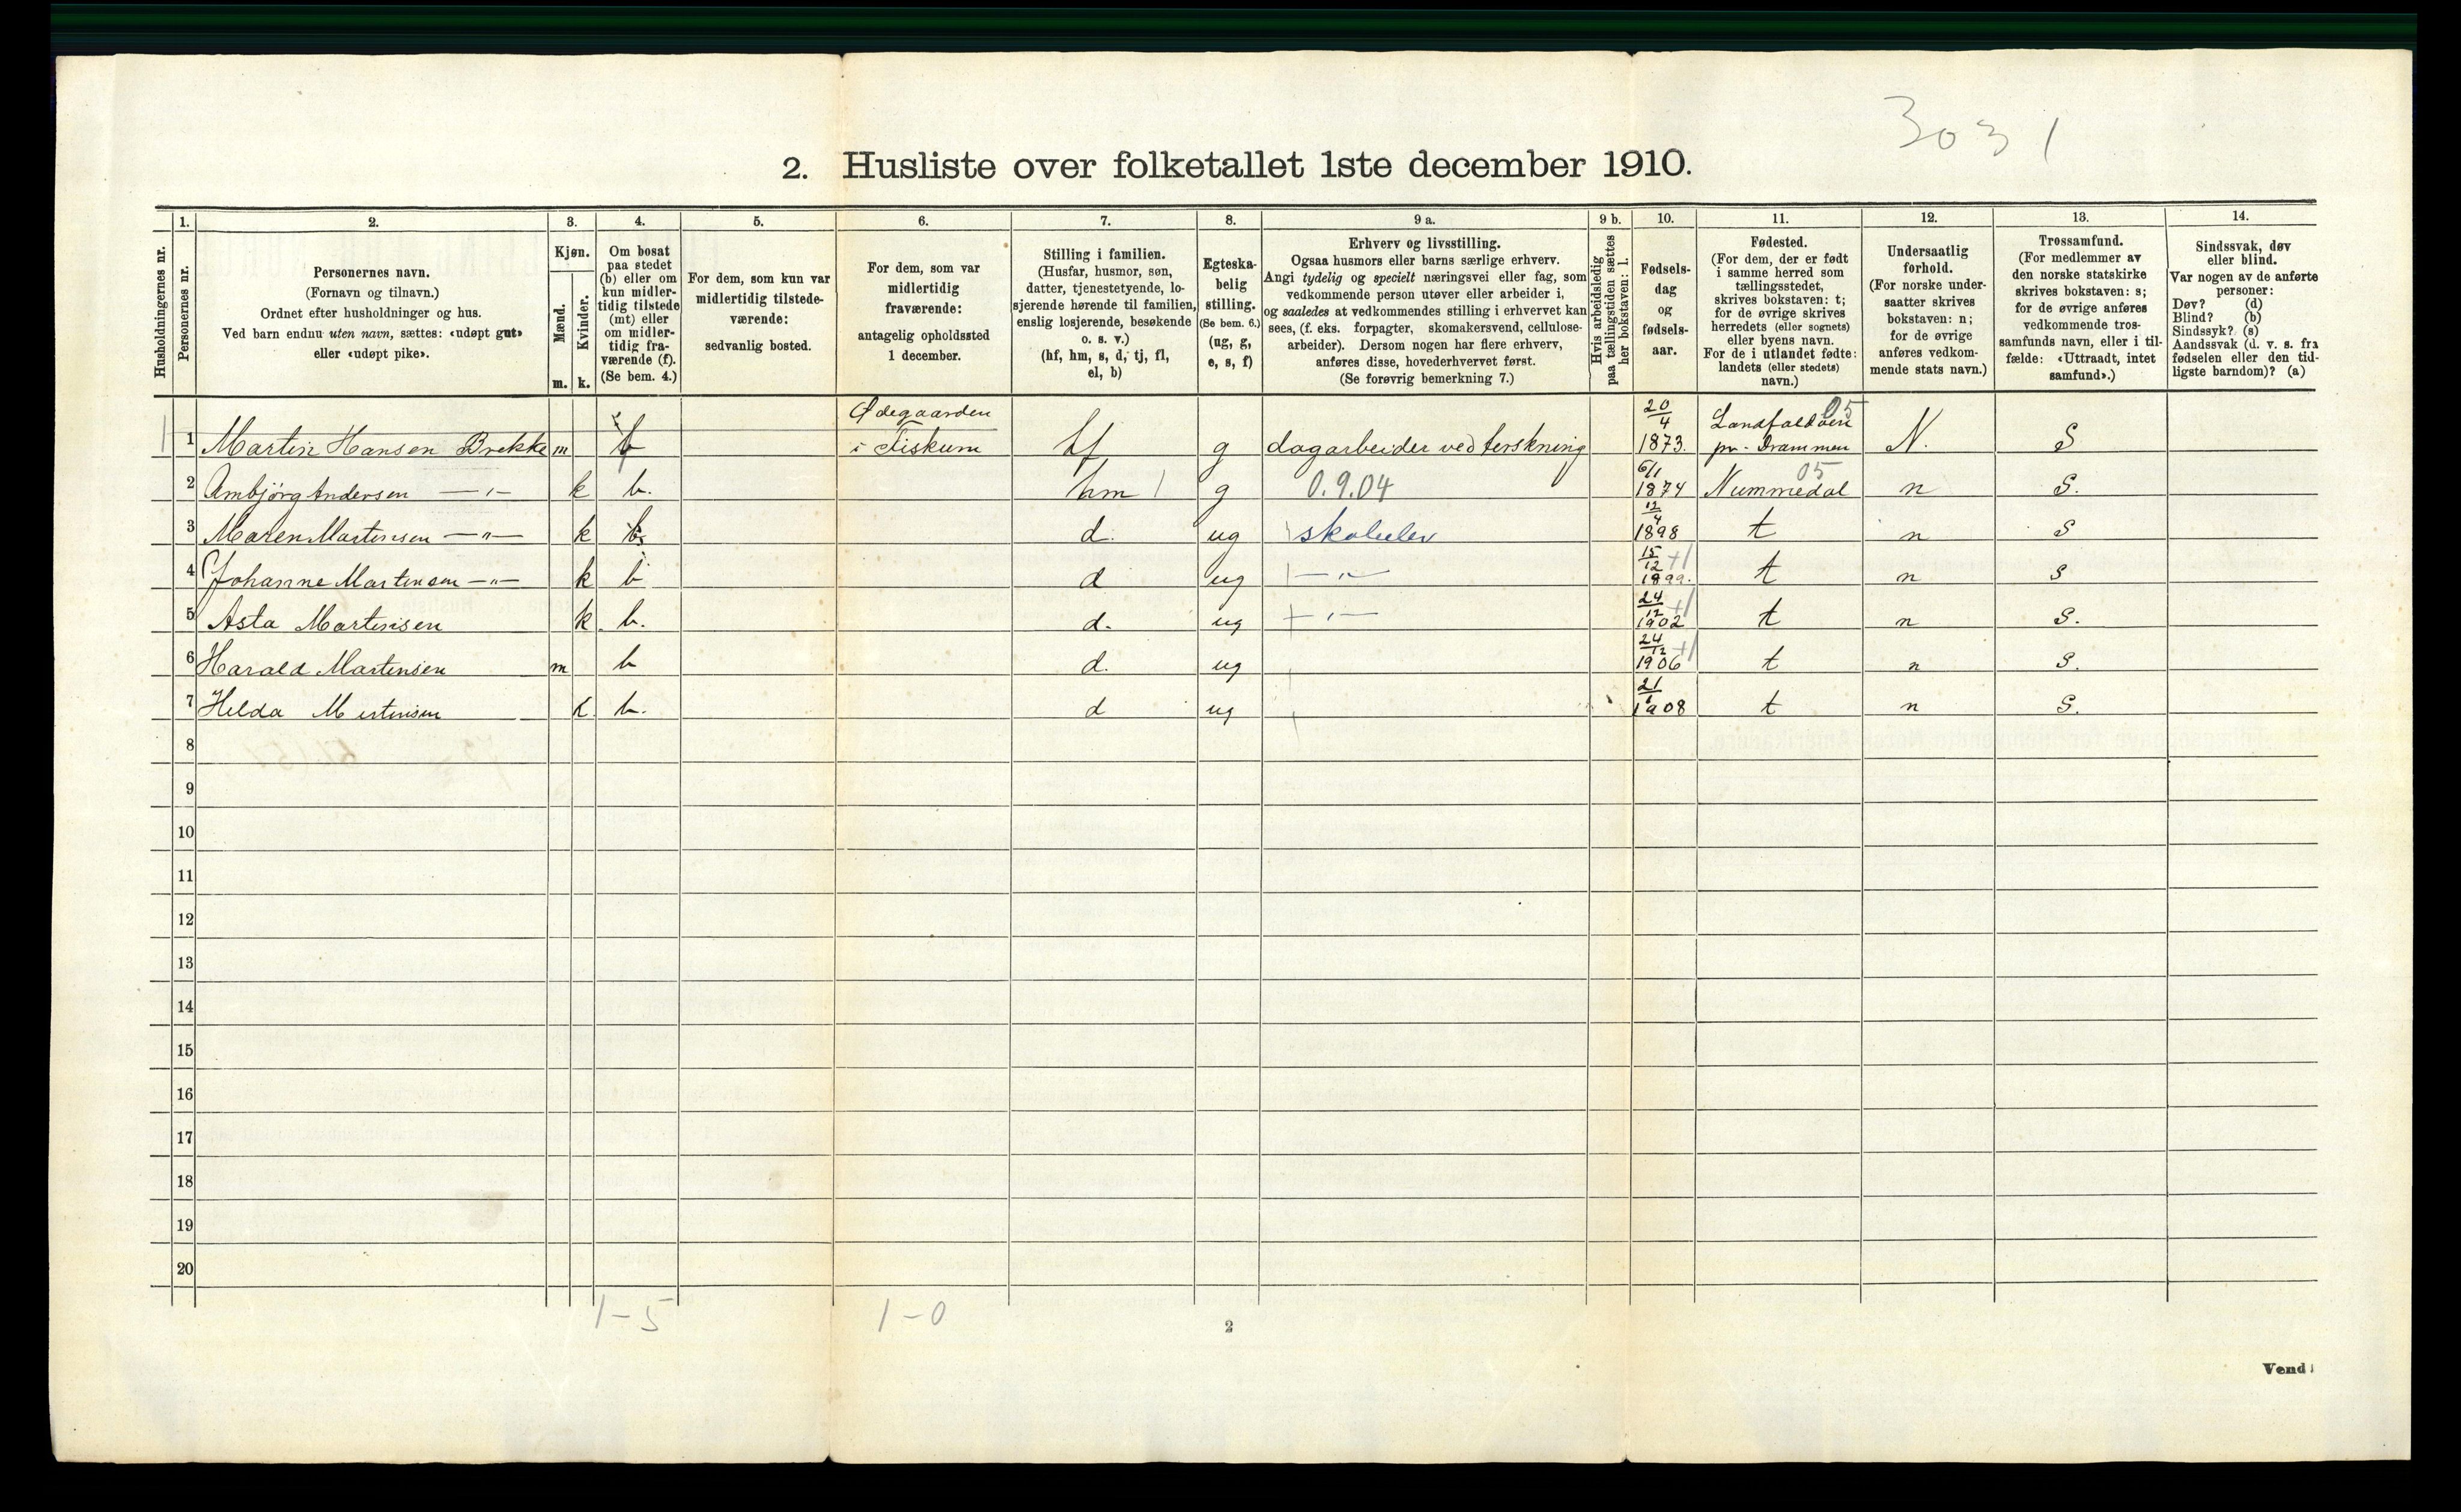 3031
2. Husliste over folketallet 1ste december 1910.
Husholdningernes nr.
1. Personernes nr.
2. Personernes navn.
(Fornavn og tilnavn.)
Ordnet efter husholdninger og hus.
Ved barn endnu uten navn, sættes: «udøpt gut»
eller «udøpt pike».
3. Kjøn.
Mænd. m.
Kvinder. k.
4. Om bosat
paa stedet
(b) eller om
kun midler-
tidig tilstede
(mt) eller
om midler-
tidig fra-
værende (f).
(Se bem. 4.)
5. For dem, som kun var
midlertidig tilstede-
værende:
sedvanlig bosted.
6. For dem, som var
midlertidig
fraværende:
antagelig opholdssted
1 december.
7. Stilling i familien.
(Husfar, husmor, søn,
datter, tjenestetyende, lo-
sjerende hørende til familien,
enslig losjerende, besøkende
o. s. v.)
(hf, hm, s, d, tj, fl,
el, b)
8. Egteska-
belig
stilling.
(Se bem. 6.)
(ug, g,
e, s, f)
9 a. Erhverv og livsstilling.
Ogsaa husmors eller barns særlige erhverv.
Angi tydelig og specielt næringsvei eller fag, som
vedkommende person utøver eller arbeider i,
og saaledes at vedkommendes stilling i erhvervet kan
sees, (f. eks. forpagter, skomakersvend, cellulose-
arbeider). Dersom nogen har flere erhverv,
anføres disse, hovederhvervet først.
(Se forøvrig bemerkning 7.)
9 b. Hvis arbeidsledig
paa tællingstiden sættes
her bokstaven: l.
10. Fødsels-
dag
og
fødsels-
aar.
11. Fødested.
(For dem, der er født
i samme herred som
tællingsstedet,
skrives bokstaven: t;
for de øvrige skrives
herredets (eller sognets)
eller byens navn.
For de i utlandet fødte:
landets (eller stedets)
navn.)
12. Undersaatlig
forhold.
(For norske under-
saatter skrives
bokstaven: n;
for de øvrige
anføres vedkom-
mende stats navn.)
13. Trossamfund.
(For medlemmer av
den norske statskirke
skrives bokstaven: s;
for de øvrige anføres
vedkommende tros-
samfunds navn, eller i til-
fælde: «Uttraadt, intet
samfund».)
14. Sindssvak, døv
eller blind.
Var nogen av de anførte
personer:
Døv? (d)
Blind? (b)
Sindssyk? (s)
Aandssvak (d. v. s. fra
fødselen eller den tid-
ligste barndom)? (a)
1 1 Martin Hansen Brekke m f Ødegaarden i Fiskum hf g dagarbeider ved terskning 20/4 1873. Landfaldøen pr. Drammen 05 N. S
2 Ambjørg Andersen —"— k b. hm 1 g 0.9.04 6/1 1874 Nummedal 05 n S.
3 Maren Martinsen —"— k b. d. ug skoleelev 12/4 1898 t n S
4 Johanne Martinsen —"— k b d ug —"— 15/12 1899. +1 t n S
5 Asta Martinsen k. b. d. ug —"— 24/12 1902 +1 t n S.
6 Harald Martinsen m b d. ug 24/12 1906 +1 t n S.
7 Helda Martinsen k. b. d ug 21/6 1908 t n S.
8
9
10
11
12
13
14
15
16
17
18
19
20
1-5 1-0
2
Vend!